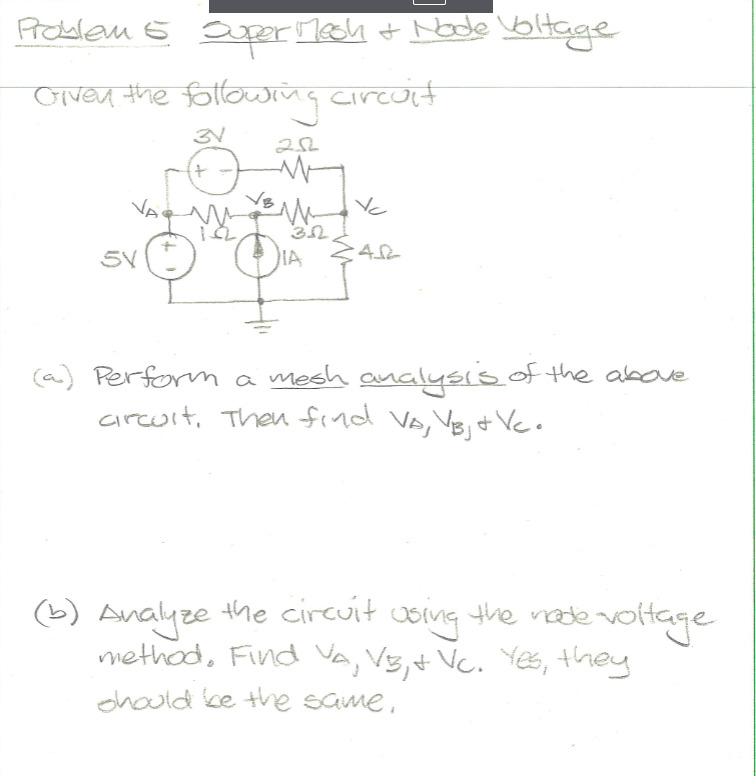 Problem 5 Super Mesh + Node Voltage
Given the following circuit
3V 2Ω
+ -
VA VB VC
1Ω 3Ω
5V + - 1A 4Ω
(a) Perform a mesh analysis of the above
circuit. Then find VA, VB, + VC.
(b) Analyze the circuit using the node-voltage
method. Find VA, VB, + VC. Yes, they
should be the same.